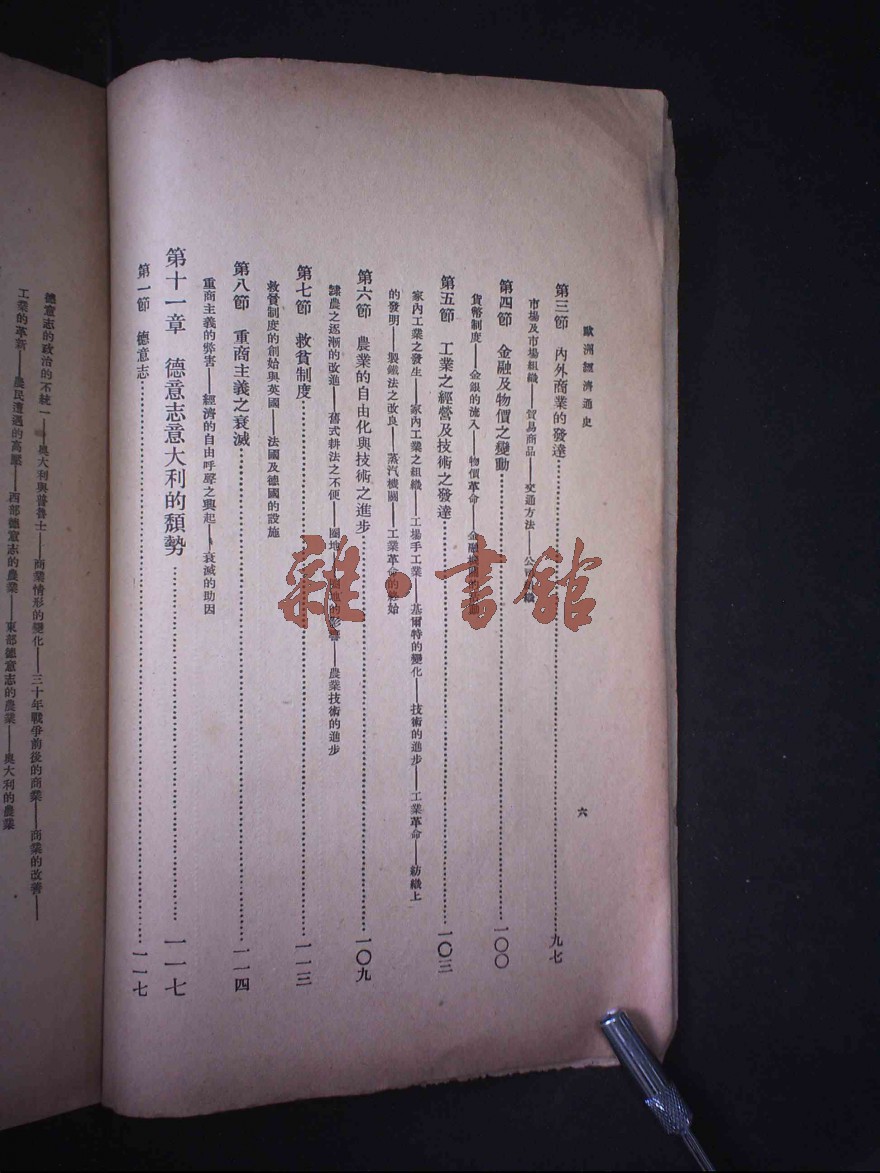 歐洲經濟通史
六
第三節 內外商業的發達……九七
市場及市場組織——貿易商品——交通方法——公
第四節 金融及物價之變動……一〇〇
貨幣制度——金銀的流入——物價革命——金融
第五節 工業之經營及技術之發達……一〇三
家內工業之發生——家內工業之組織——工場手工業——基爾特的變化——技術的進步——工業革命——紡織上
的發明——製鐵法之改良——蒸汽機關——工業革命的開始
第六節 農業的自由化與技術之進步……一〇九
隸農之逐漸的改進——舊式耕法之不便——圈地——圈地的影響——農業技術的進步
第七節 救貧制度……一一三
救貧制度的創始與英國——法國及德國的設施
第八節 重商主義之衰滅……一一四
重商主義的弊害——經濟的自由呼聲之興起——衰滅的助因
第十一章 德意志意大利的頹勢……一一七
第一節 德意志……一一七
德意志的政治的不統一——奧大利與普魯士——商業情形的變化——三十年戰爭前後的商業——商業的改善——
工業的革新——農民遭遇的高壓——西部德意志的農業——東部德意志的農業——奧大利的農業
雜·書館